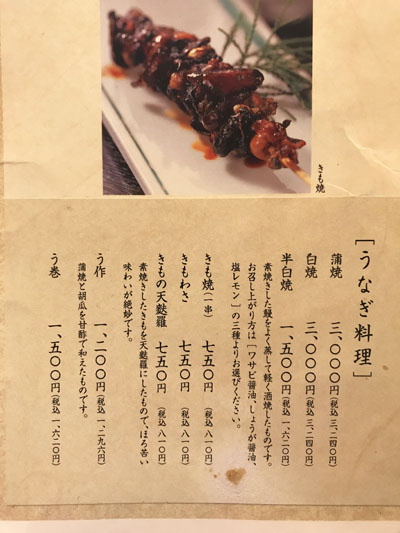 きも焼
［うなぎ料理］
蒲焼 三、〇〇〇円（税込 三、二四〇円）
白焼 三、〇〇〇円（税込 三、二四〇円）
半白焼 一、五〇〇円（税込 一、六二〇円）
素焼きした鰻をよく蒸して軽く酒焼したものです。
お召し上がり方は「ワサビ醤油、しょうが醤油、
塩レモン」の三種よりお選びください。
きも焼（一串） 七五〇円（税込 八一〇円）
きもわさ 七五〇円（税込 八一〇円）
きもの天麩羅 七五〇円（税込 八一〇円）
素焼きしたきもを天麩羅にしたもので、ほろ苦い
味わいが絶妙です。
う作 一、二〇〇円（税込 一、二九六円）
蒲焼と胡瓜を甘酢で和えたものです。
う巻 一、五〇〇円（税込 一、六二〇円）